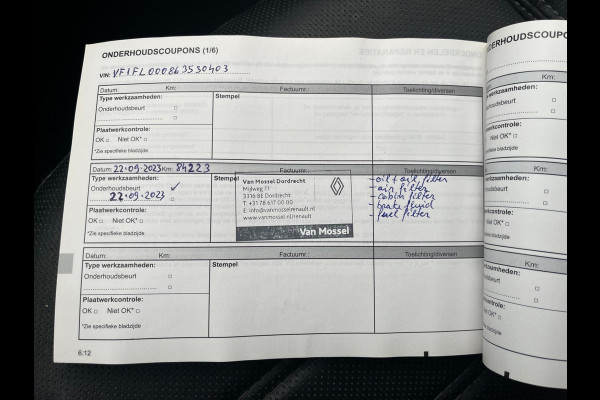 ONDERHOUDSCOUPONS (1/6)
VIN: VF1FL000863530403
Datum: Km: Factuurnr.: Toelichting/diversen
Type werkzaamheden: Stempel
Onderhoudsbeurt
Plaatwerkcontrole:
OK Niet OK*
*Zie specifieke bladzijde
Datum: 22-09-2023 Km: 84223 Factuurnr.: Toelichting/diversen
Type werkzaamheden: Stempel
Onderhoudsbeurt ✓
22-09-2023
Plaatwerkcontrole:
OK Niet OK*
*Zie specifieke bladzijde
Van Mossel Dordrecht
Mijlweg 71
3316 BE Dordrecht
T: +31 78 617 00 00
E: info@vanmosselrenault.nl
www.vanmossel.nl/renault
Van Mossel
- oil + oil filter
- air filter
- cabin filter
- brake fluid
- fuel filter
Datum: Km: Factuurnr.: Toelichting/diversen
Type werkzaamheden: Stempel
Onderhoudsbeurt
Plaatwerkcontrole:
OK Niet OK*
*Zie specifieke bladzijde
6.12
DERHOUDSCOUPO
Km:
werkzaamheden:
Km:
werkzaamheden:
Km:
werkzaamheden: